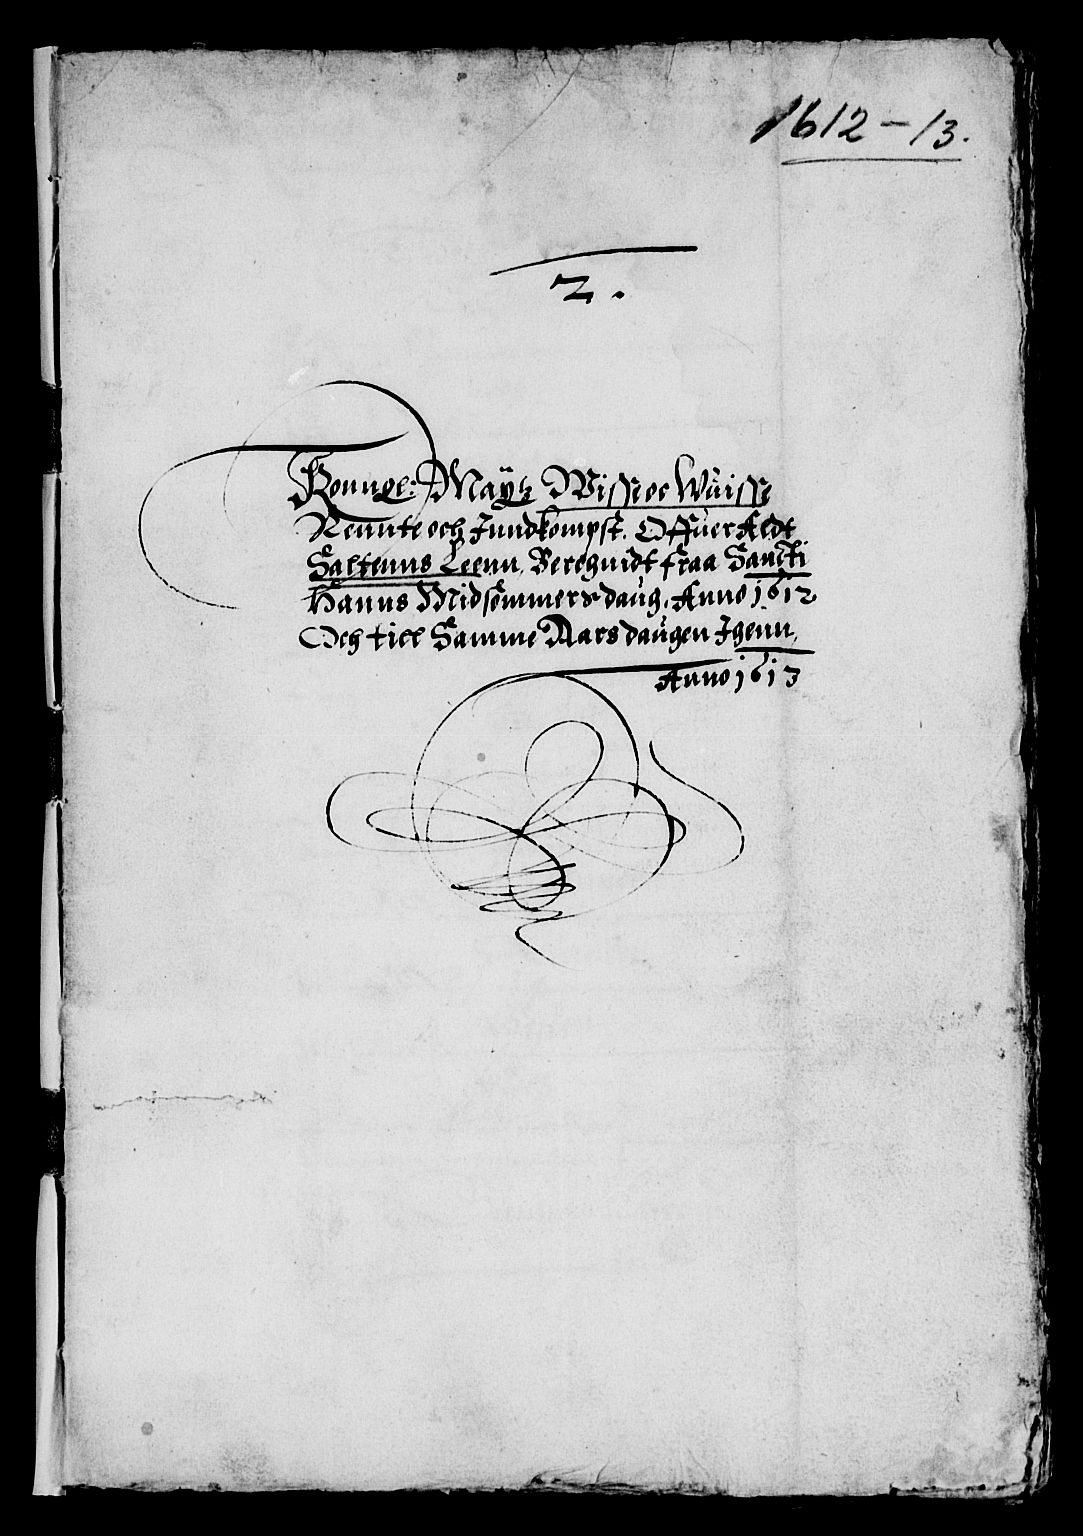 1612-13.
2.
Konngl: Mayts Wisse oc Wüisse
Rennte och Inndkompst. Offuer Aldt
Saltenns Leenn, Beregnidt fraa Sancti
Hanns Midsommers daug, Anno 1612
Och till Samme Aars daugen Igenn,
Anno 1613